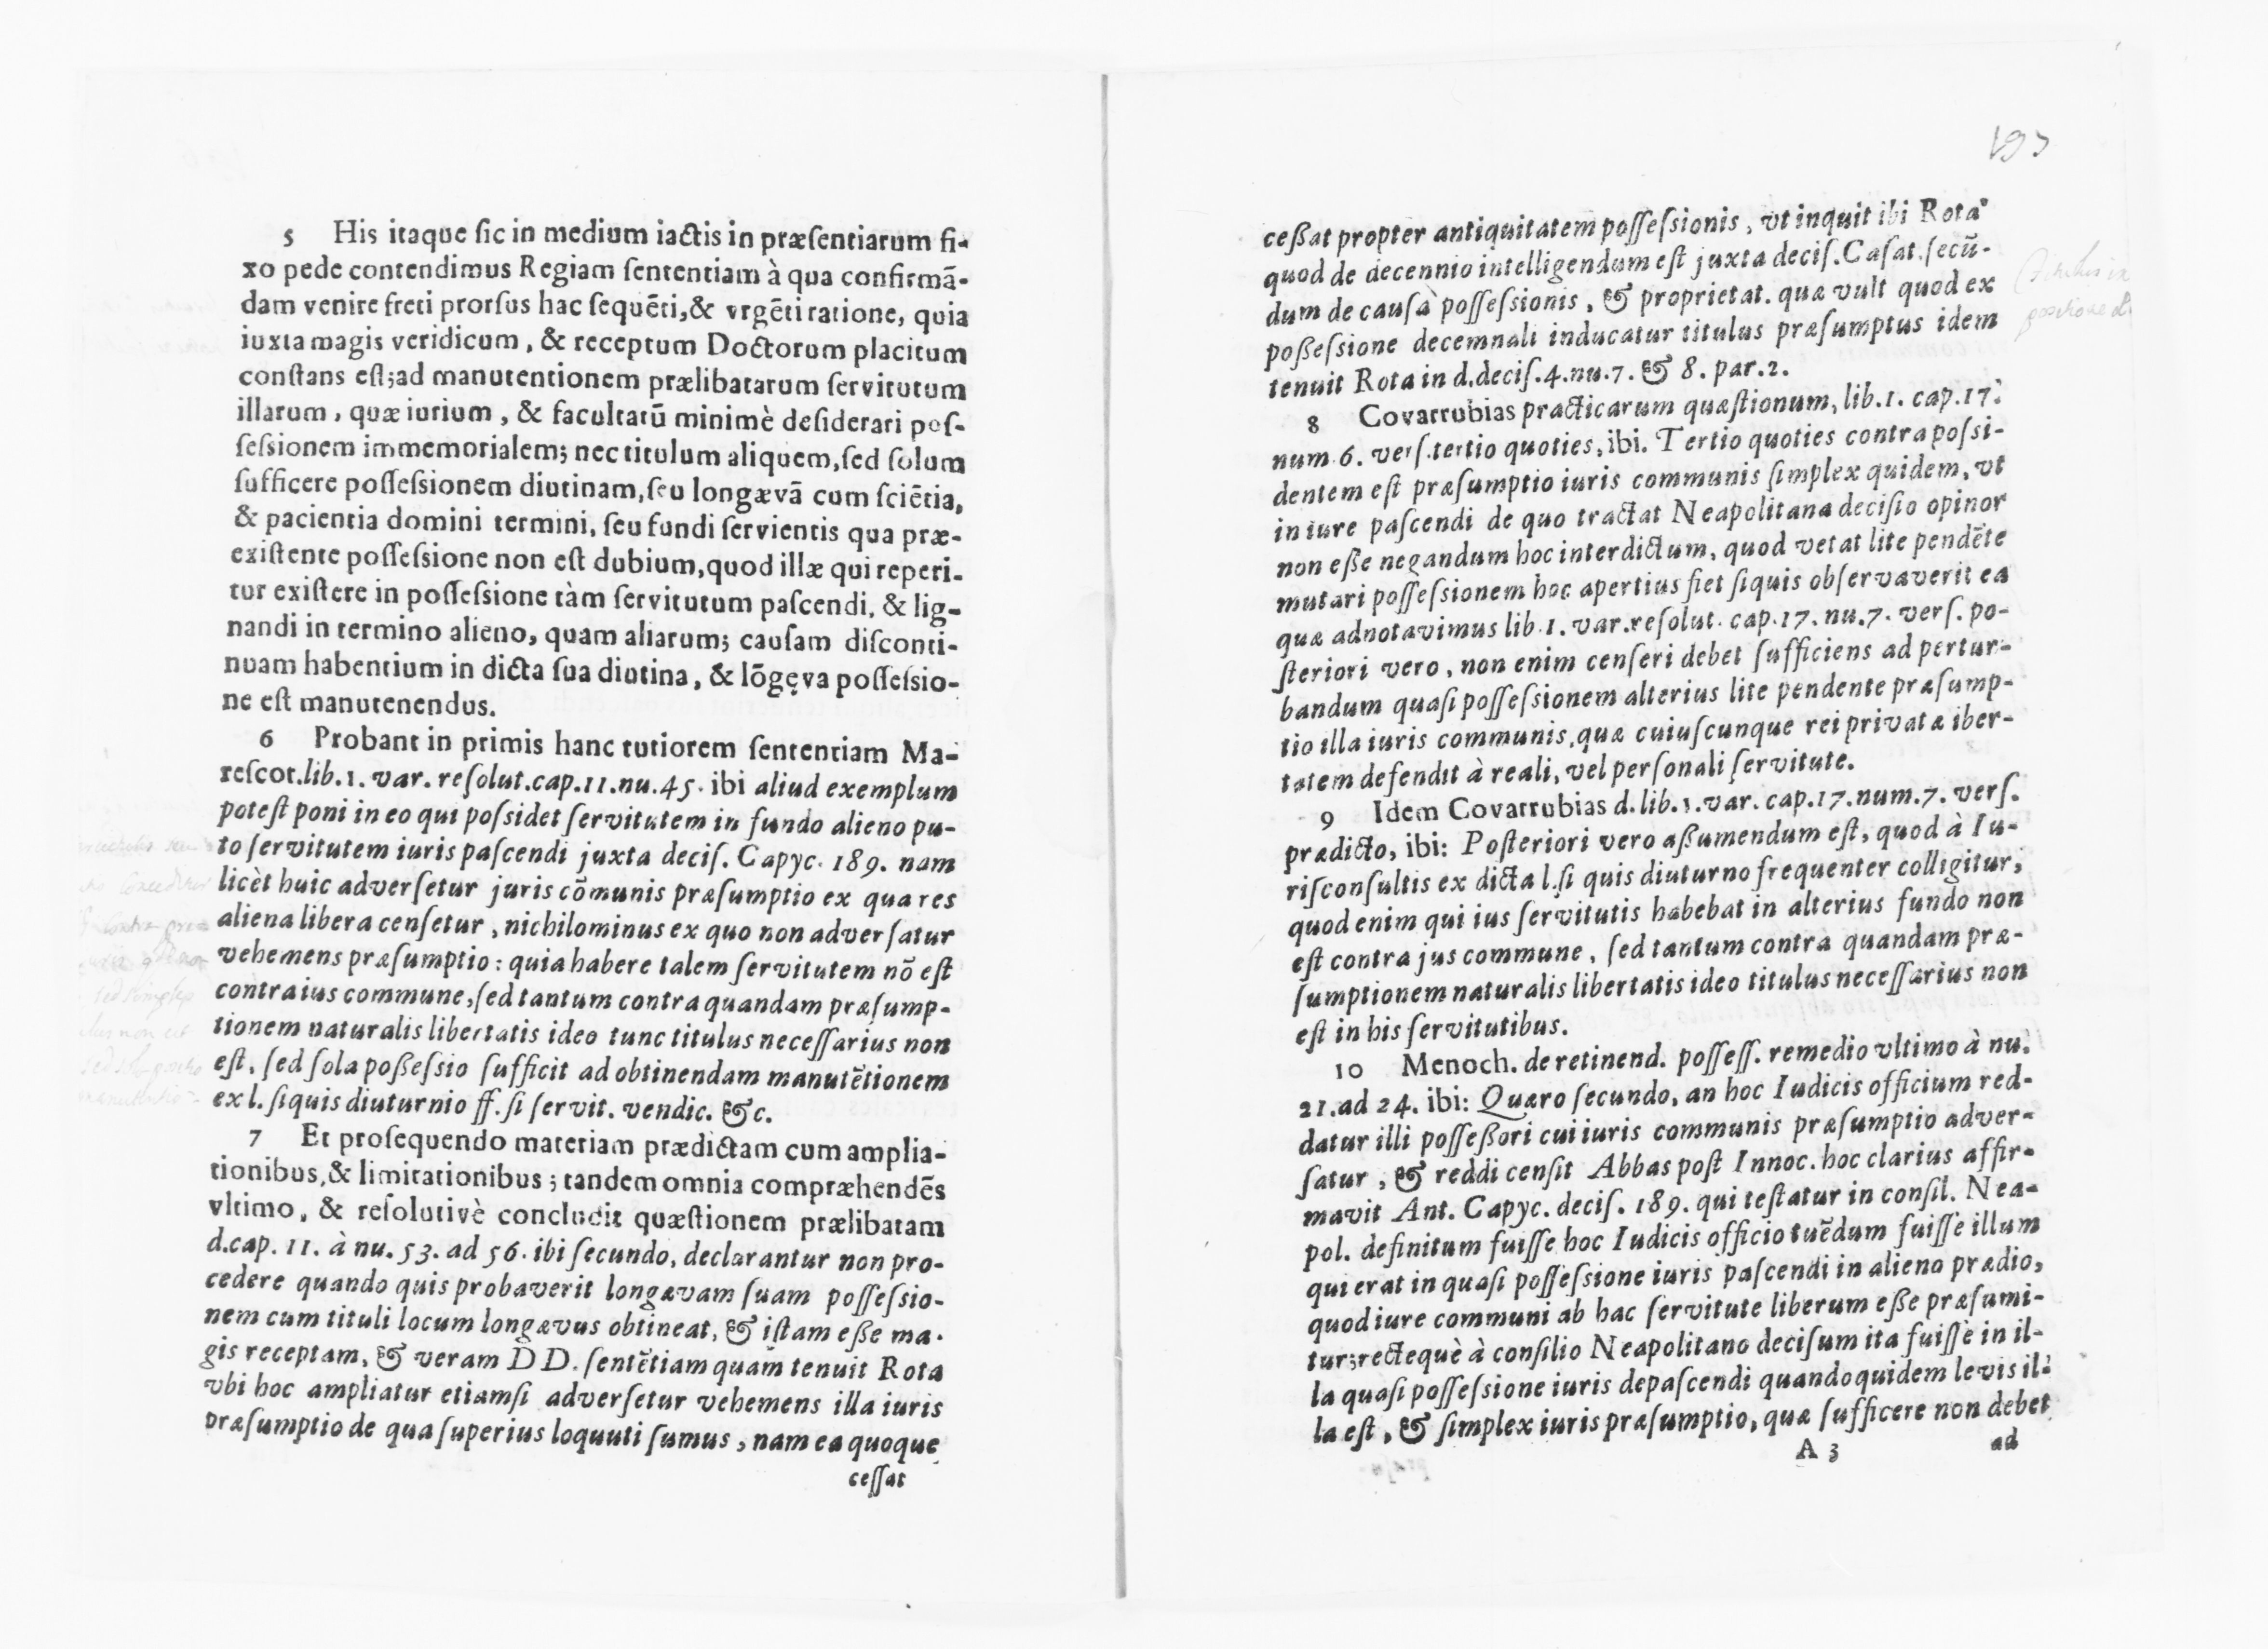 5 His itaque ſic in medium iactis in præſentiarum fi-
xo pede contendimus Regiam ſententiam à qua confirmā-
dam venire freti prorſus hac ſequēti,& vrgēti ratione, quia
iuxta magis veridicum, & receptum Doctorum placitum
conſtans eſt;ad manutentionem prælibatarum ſervitutum
illarum, quæ iurium, & facultatū minimè deſiderari poſ-
ſeſsionem immemorialem; nec titulum aliquem,ſed ſolum
ſufficere poſſeſsionem diutinam,ſeu longævā cum ſciētia,
& pacientia domini termini, ſeu fundi ſervientis qua præ-
exiſtente poſſeſsione non eſt dubium,quod illæ qui reperi-
tur exiſtere in poſſeſsione tàm ſervitutum paſcendi, & lig-
nandi in termino alieno, quam aliarum; cauſam diſconti-
nuam habentium in dicta ſua diutina, & lōgęva poſſeſsio-
ne eſt manutenendus.
6 Probant in primis hanc tutiorem ſententiam Ma-
reſcot.lib.1. var. reſolut.cap.11.nu.45. ibi aliud exemplum
poteſt poni in eo qui poſsidet ſervitutem in fundo alieno pu-
to ſervitutem iuris paſcendi juxta deciſ. Capyc. 189. nam
licèt huic adverſetur juris cōmunis præſumptio ex qua res
aliena libera cenſetur, nichilominus ex quo non adverſatur
vehemens præſumptio: quia habere talem ſervitutem nō eſt
contra ius commune,ſed tantum contra quandam præſump-
tionem naturalis libertatis ideo tunc titulus neceſſarius non
eſt, ſed ſola poßeſsio ſufficit ad obtinendam manutētionem
ex l. ſiquis diuturnio ff. ſi ſervit. vendic. &c.
7 Et proſequendo materiam prædictam cum amplia-
tionibus,& limitationibus; tandem omnia compræhendēs
vltimo, & reſolutivè concludit quæſtionem prælibatam
d.cap. 11. à nu. 53. ad 56. ibi ſecundo, declarantur non pro-
cedere quando quis probaverit longævam ſuam poſſeſsio-
nem cum tituli locum longævus obtineat, & iſtam eße ma-
gis receptam, & veram DD. ſentētiam quam tenuit Rota
vbi hoc ampliatur etiamſi adverſetur vehemens illa iuris
præſumptio de qua ſuperius loquuti ſumus, nam ea quoque
ceſſat
193
ceßat propter antiquitatem poſſeſsionis, vt inquit ibi Rota
quod de decennio intelligendum eſt juxta deciſ.Caſat.ſecū-
dum de cauſa poſſeſsionis, & proprietat. quæ vult quod ex
poßeſsione decemnali inducatur titulus præſumptus idem
tenuit Rota in d.deciſ.4.nu.7. & 8. par.2.
8 Covarrubias practicarum quæſtionum, lib.1. cap.17.
num.6. verſ.tertio quoties, ibi. Tertio quoties contra poſsi-
dentem eſt præſumptio iuris communis ſimplex quidem, vt
in iure paſcendi de quo tractat Neapolitana deciſio opinor
non eße negandum hoc interdictum, quod vetat lite pendēte
mutari poſſeſsionem hoc apertius fiet ſiquis obſervaverit ea
quæ adnotavimus lib.1. var.reſolut. cap.17. nu.7. verſ. po-
ſteriori vero, non enim cenſeri debet ſufficiens ad pertur-
bandum quaſi poſſeſsionem alterius lite pendente præſump-
tio illa iuris communis,quæ cuiuſcunque rei privatæ iber-
tatem defendit à reali, vel perſonali ſervitute.
9 Idem Covarrubias d.lib.1.var. cap.17.num.7. verſ.
prædicto, ibi: Poſteriori vero aßumendum eſt, quod à Iu-
riſconſultis ex dicta l.ſi quis diuturno frequenter colligitur,
quod enim qui ius ſervitutis habebat in alterius fundo non
eſt contra jus commune, ſed tantum contra quandam præ-
ſumptionem naturalis libertatis ideo titulus neceſſarius non
eſt in his ſervitutibus.
10 Menoch. de retinend. poſſeſſ. remedio vltimo à nu.
21.ad 24. ibi: Quæro ſecundo, an hoc Iudicis officium red-
datur illi poſſeßori cui iuris communis præſumptio adver-
ſatur, & reddi cenſit Abbas poſt Innoc. hoc clarius affir-
mavit Ant. Capyc. deciſ. 189. qui teſtatur in conſil. Nea-
pol. definitum fuiſſe hoc Iudicis officio tuēdum fuiſſe illum
qui erat in quaſi poſſeſsione iuris paſcendi in alieno prædio,
quod iure communi ab hac ſervitute liberum eße præſumi-
tur;rectequè à conſilio Neapolitano deciſum ita fuiſſe in il-
la quaſi poſſeſsione iuris depaſcendi quandoquidem levis il-
la eſt, & ſimplex iuris præſumptio, quæ ſufficere non debet
A 3 ad